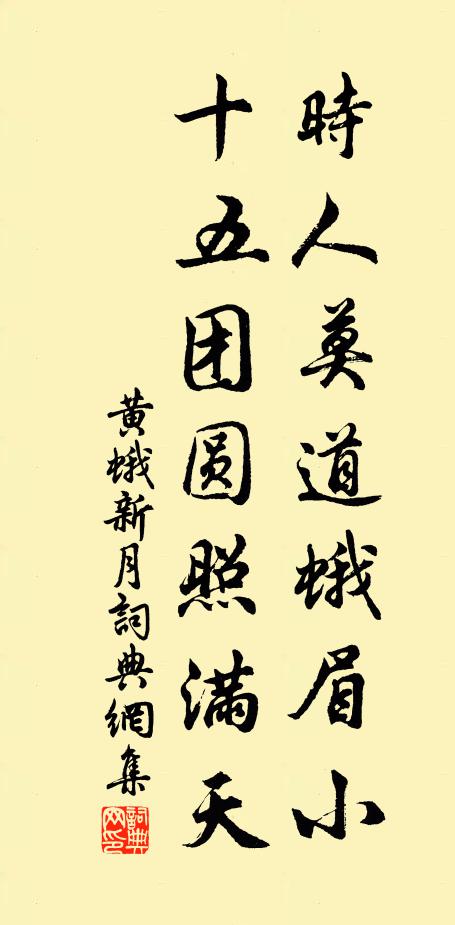 時人莫道蛾眉小
十五团圆照满天
黄蛾新月詞典網集
詞典网印